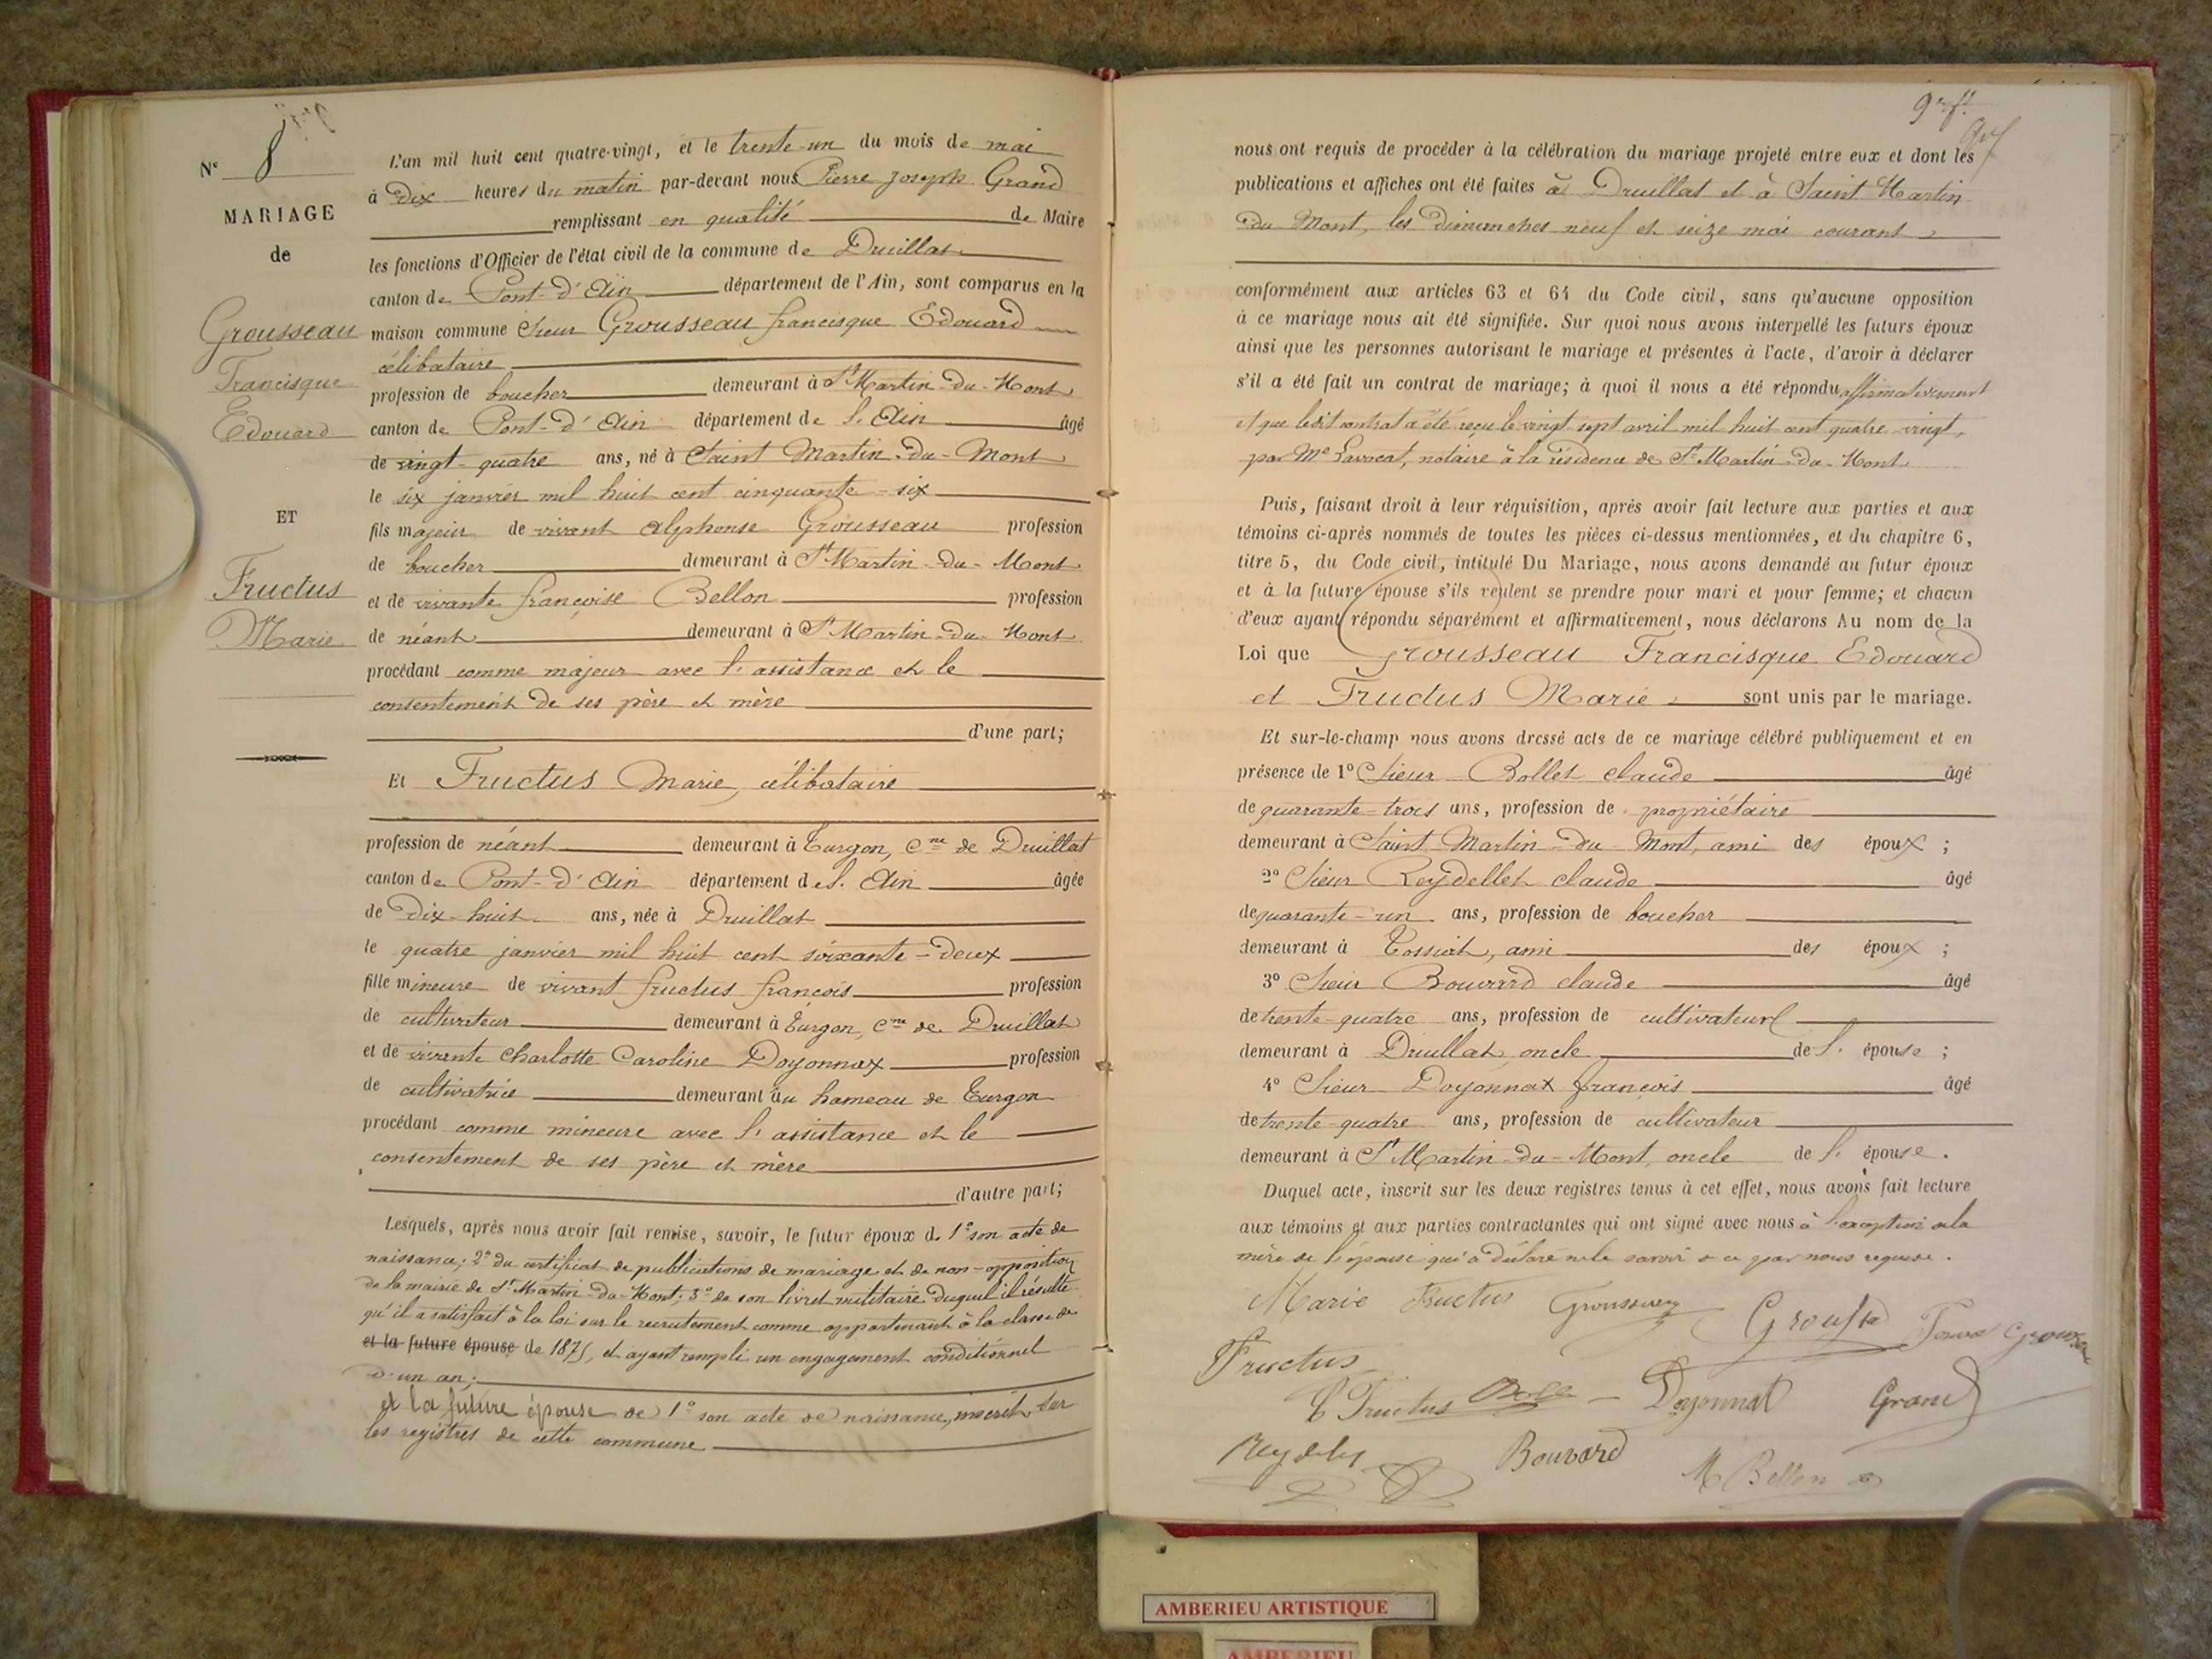 N° 8
MARIAGE
de
Grousseau
Francisque
Edouard
ET
Fructus
Marie
L'an mil huit cent quatre-vingt, et le trente-un du mois de mai
à Dix heures du matin par-devant nous Pierre Joseph Grand
remplissant en qualité de Maire
les fonctions d'Officier de l'état civil de la commune de Druillat
canton de Pont-d'Ain département de l'Ain, sont comparus en la
maison commune Sieur Grousseau francisque Edouard
célibataire
profession de boucher demeurant à St Martin-du-Mont
canton de Pont-d'Ain département de l'Ain âgé
de vingt-quatre ans, né à Saint Martin-du-Mont
le six janvier mil huit cent cinquante-six
fils majeur de vivant Alphonse Grousseau profession
de boucher demeurant à St Martin-du-Mont
et de vivante françoise Bellon profession
de néant demeurant à St Martin-du-Mont
procédant comme majeur avec l'assistance et le
consentement de ses père et mère
d'une part;
Et Fructus Marie, célibataire
profession de néant demeurant à Turgon, Cne de Druillat
canton de Pont-d'Ain département de l'Ain âgée
de Dix-huit ans, née à Druillat
le quatre janvier mil huit cent soixante-deux
fille mineure de vivant fructus françois profession
de cultivateur demeurant à Turgon, Cne de Druillat
et de vivante Charlotte Caroline Doyonnax profession
de cultivatrice demeurant au hameau de Turgon
procédant comme mineure avec l'assistance et le
consentement de ses père et mère
d'autre part;
Lesquels, après nous avoir fait remise, savoir, le futur époux de 1° son acte de
naissance; 2° du certificat de publications de mariage et de non-opposition
de la mairie de St Martin-du-Mont; 3° de son livret militaire duquel il résulte
qu'il a satisfait à la loi sur le recrutement comme appartenant à la classe de
et la future épouse de 1875, et ayant rempli un engagement conditionnel
d'un an;
et la future épouse de 1° son acte de naissance, inscrit sur
les registres de cette commune
9e ft.
nous ont requis de procéder à la célébration du mariage projeté entre eux et dont les
publications et affiches ont été faites à Druillat et à Saint Martin
du Mont, les Dimanches neuf et seize mai courant
conformément aux articles 63 et 64 du Code civil, sans qu'aucune opposition
à ce mariage nous ait été signifiée. Sur quoi nous avons interpellé les futurs époux
ainsi que les personnes autorisant le mariage et présentes à l'acte, d'avoir à déclarer
s'il a été fait un contrat de mariage; à quoi il nous a été répondu affirmativement
et que ledit contrat a été reçu le vingt-sept avril mil huit cent quatre-vingt,
par Me Lavocat, notaire à la résidence de St Martin-du-Mont
Puis, faisant droit à leur réquisition, après avoir fait lecture aux parties et aux
témoins ci-après nommés de toutes les pièces ci-dessus mentionnées, et du chapitre 6,
titre 5, du Code civil, intitulé Du Mariage, nous avons demandé au futur époux
et à la future épouse s'ils veulent se prendre pour mari et pour femme; et chacun
d'eux ayant répondu séparément et affirmativement, nous déclarons Au nom de la
Loi que Grousseau Francisque Edouard
et Fructus Marie sont unis par le mariage.
Et sur-le-champ nous avons dressé acte de ce mariage célébré publiquement et en
présence de 1° Sieur Bollet claude âgé
de quarante-trois ans, profession de propriétaire
demeurant à Saint Martin-du-Mont, ami des époux ;
2° Sieur Reydellet claude âgé
de quarante-un ans, profession de boucher
demeurant à Tossiat, ami des époux ;
3° Sieur Bouvard claude âgé
de trente-quatre ans, profession de cultivateur
demeurant à Druillat, oncle de l'épouse ;
4° Sieur Doyonnax françois âgé
de trente-quatre ans, profession de cultivateur
demeurant à St Martin-du-Mont, oncle de l'épouse.
Duquel acte, inscrit sur les deux registres tenus à cet effet, nous avons fait lecture
aux témoins et aux parties contractantes qui ont signé avec nous à l'exception de la
mère de l'épouse qui a déclaré ne le savoir de ce par nous requise.
Marie Fructus
Fructus
Fructus Doyonnat Grand
Bouvard M Bellon
AMBERIEU ARTISTIQUE
AMBERIEU